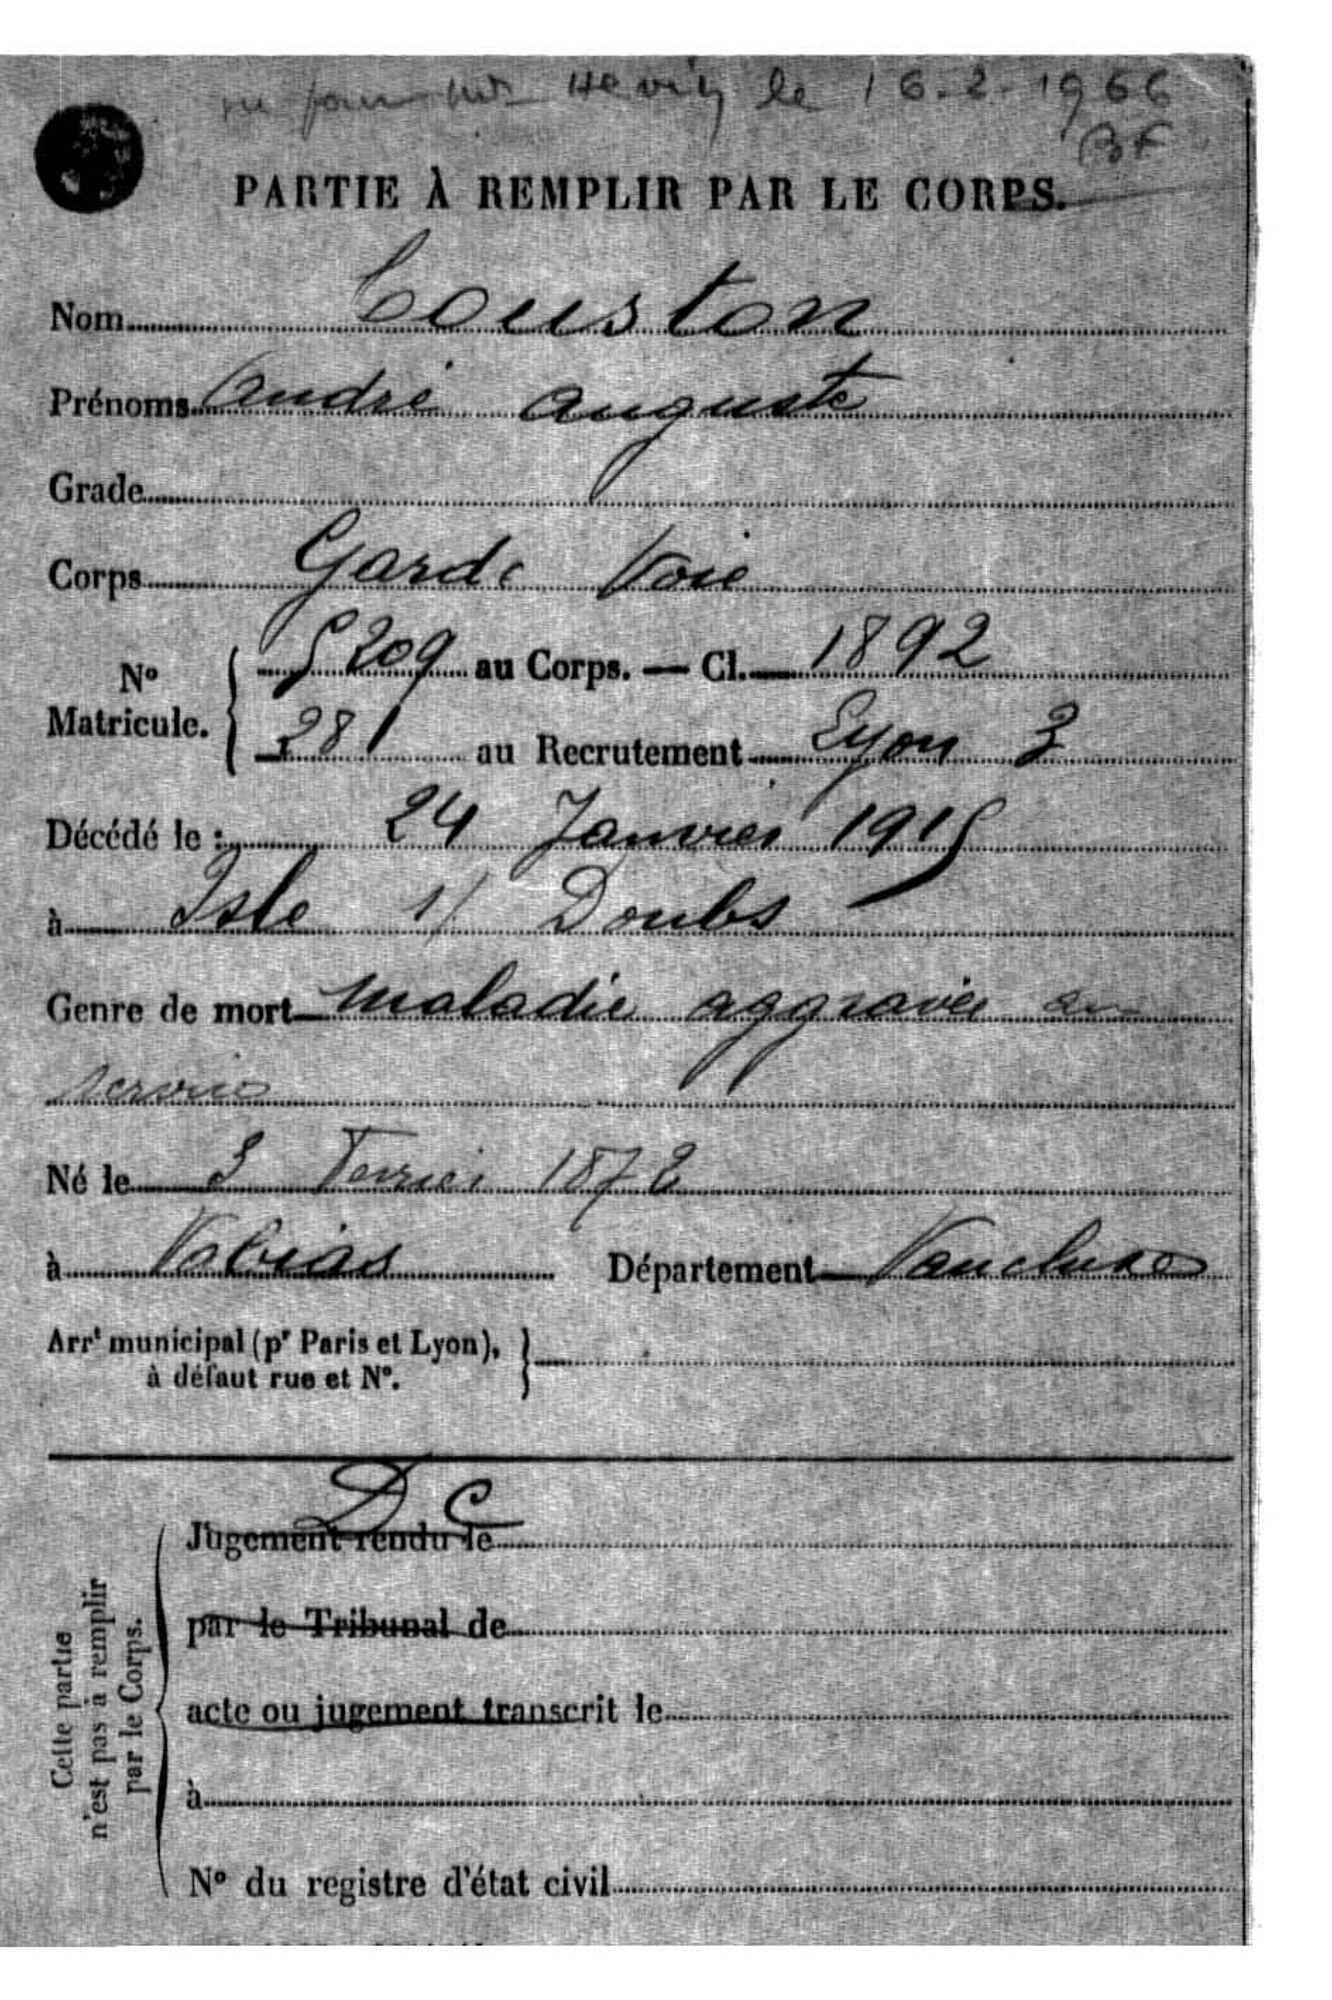 le 16-2-1966
PARTIE À REMPLIR PAR LE CORPS.
Nom Couston
Prénoms André Auguste
Grade
Corps Garde Voie
No Matricule. { 5209 au Corps. — Cl. 1892
281 au Recrutement Lyon 3
Décédé le : 24 Janvier 1915
à Isle s/ Doubs
Genre de mort maladie aggravée en
service
Né le 3 Février 1872
à Valréas Département Vaucluse
Arrt municipal (pr Paris et Lyon), }
à défaut rue et No.
D C
Jugement rendu le
par le Tribunal de
acte ou jugement transcrit le
à
No du registre d'état civil
Cette partie
n'est pas à remplir
par le Corps.